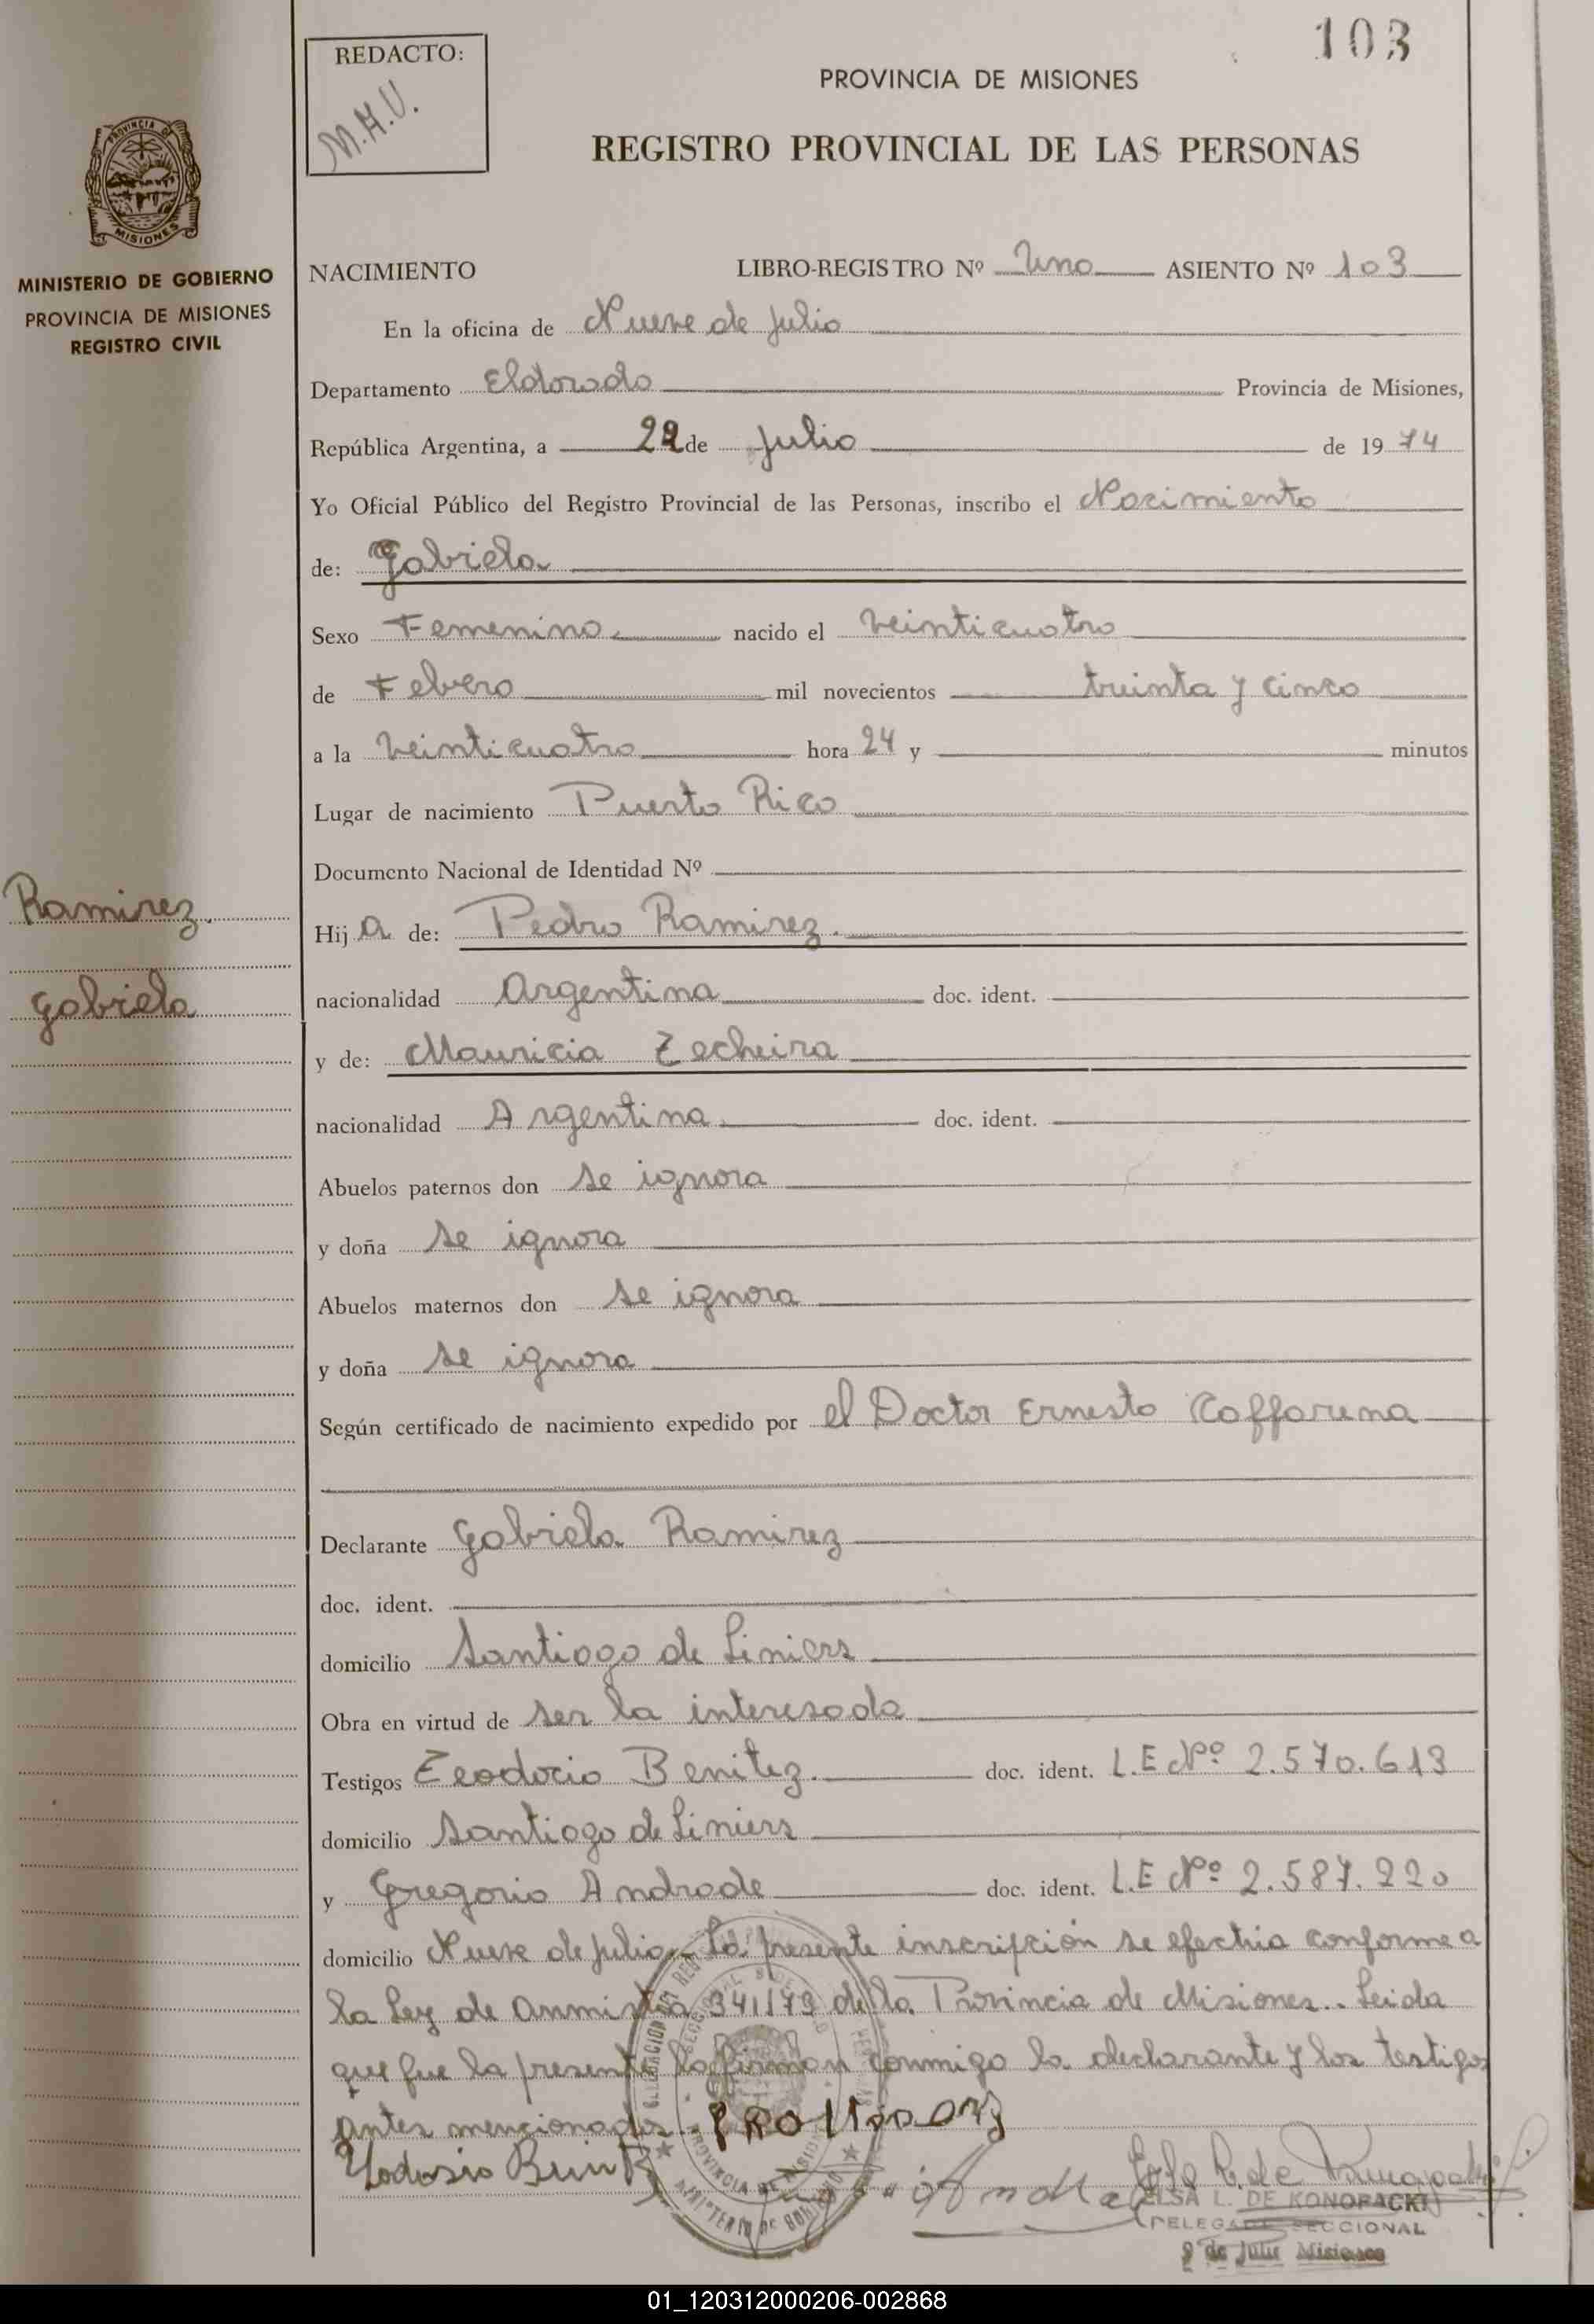 103
REDACTO:
M.H.V.
PROVINCIA DE MISIONES
REGISTRO PROVINCIAL DE LAS PERSONAS
PROVINCIA DE
MISIONES
MINISTERIO DE GOBIERNO
PROVINCIA DE MISIONES
REGISTRO CIVIL
NACIMIENTO LIBRO-REGISTRO Nº Uno ASIENTO Nº 103
En la oficina de Nueve de Julio
Departamento Eldorado Provincia de Misiones,
República Argentina, a 22 de Julio de 1974
Yo Oficial Público del Registro Provincial de las Personas, inscribo el Nacimiento
de: Gabriela
Sexo Femenino nacido el veinticuatro
de Febrero mil novecientos treinta y cinco
a la veinticuatro hora 24 y minutos
Lugar de nacimiento Puerto Rico
Documento Nacional de Identidad Nº
Ramirez
Gabriela
Hija de: Pedro Ramirez.
nacionalidad Argentina doc. ident.
y de: Mauricia Techeira
nacionalidad Argentina doc. ident.
Abuelos paternos don se ignora
y doña se ignora
Abuelos maternos don se ignora
y doña se ignora
Según certificado de nacimiento expedido por el Doctor Ernesto Caffarena
Declarante Gabriela Ramirez
doc. ident.
domicilio Santiago de Liniers
Obra en virtud de ser la interesada
Testigos Teodocio Benitez. doc. ident. L.E Nº 2.570.613
domicilio Santiago de Liniers
y Gregorio Andrade doc. ident. L.E Nº 2.587.220
domicilio Nueve de Julio.- La presente inscripción se efectúa conforme a
la Ley de Amnistia 341/73 de la Provincia de Misiones.. Leida
que fue la presente la firman conmigo la declarante y los testigos
antes mencionados.
ELSA L. DE KONOPACKI
DELEGADA SECCIONAL
9 de Julio Misiones
01_120312000206-002868